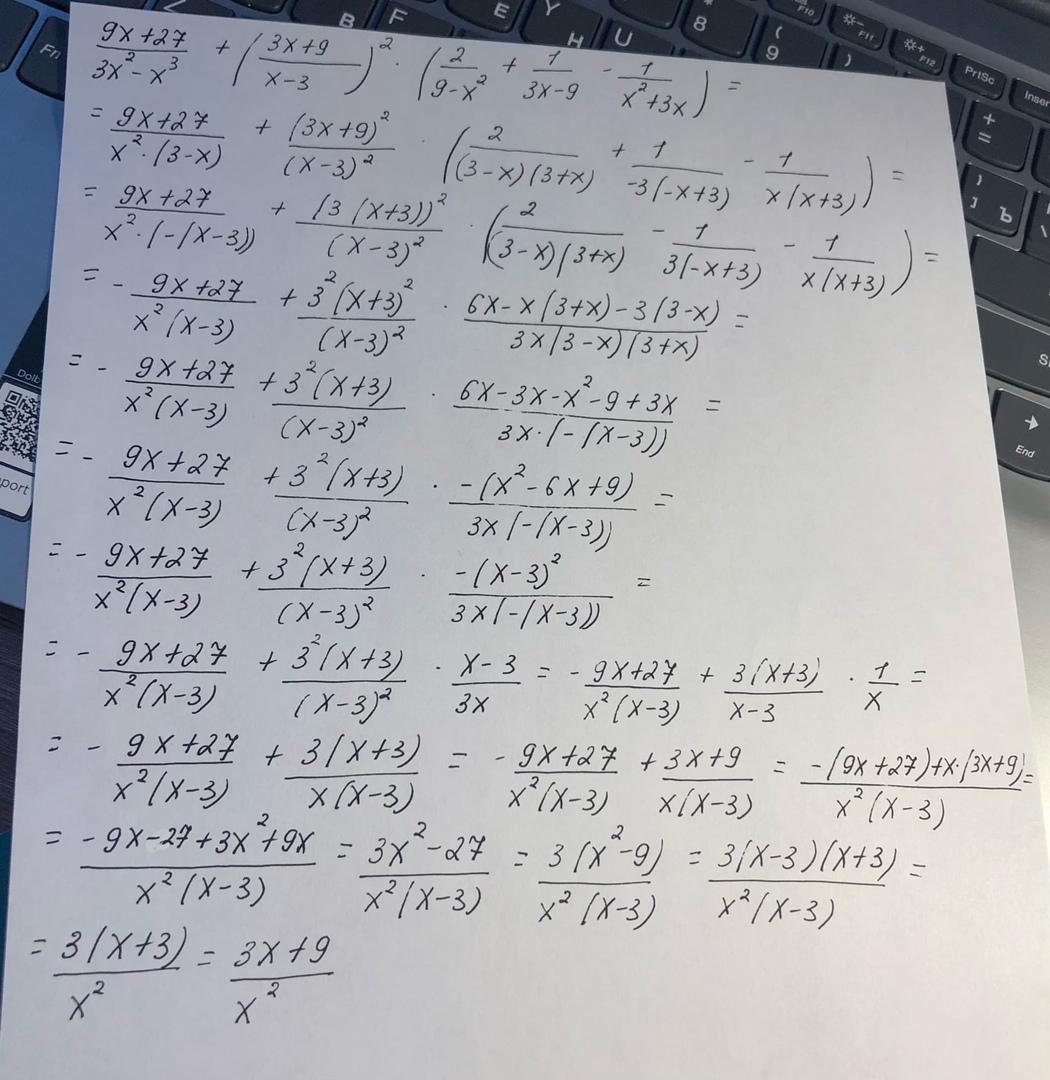 B F E Y 8 F10 F11 F12 PrtSc Inser
Fn H U 9 ) + =
(9x+27)/(3x²-x³) + ((3x+9)/(x-3))² · (2/(9-x²) + 1/(3x-9) - 1/(x²+3x)) =
= (9x+27)/(x²·(3-x)) + (3x+9)²/(x-3)² · (2/((3-x)(3+x)) + 1/(-3(-x+3)) - 1/(x(x+3))) =
= (9x+27)/(x²·(-(x-3))) + (3(x+3))²/(x-3)² · (2/((3-x)(3+x)) - 1/(3(-x+3)) - 1/(x(x+3))) =
= - (9x+27)/(x²(x-3)) + 3²(x+3)²/(x-3)² · (6x-x(3+x)-3(3-x))/(3x(3-x)(3+x)) =
= - (9x+27)/(x²(x-3)) + 3²(x+3)/(x-3)² · (6x-3x-x²-9+3x)/(3x·(-(x-3))) =
= - (9x+27)/(x²(x-3)) + 3²(x+3)/(x-3)² · (-(x²-6x+9))/(3x(-(x-3))) =
= - (9x+27)/(x²(x-3)) + 3²(x+3)/(x-3)² · (-(x-3)²)/(3x(-(x-3))) =
= - (9x+27)/(x²(x-3)) + 3²(x+3)/(x-3)² · (x-3)/(3x) = - (9x+27)/(x²(x-3)) + 3(x+3)/(x-3) · 1/x =
= - (9x+27)/(x²(x-3)) + 3(x+3)/(x(x-3)) = - (9x+27)/(x²(x-3)) + (3x+9)/(x(x-3)) = (-(9x+27)+x·(3x+9))/(x²(x-3)) =
= (-9x-27+3x²+9x)/(x²(x-3)) = (3x²-27)/(x²(x-3)) = 3(x²-9)/(x²(x-3)) = 3(x-3)(x+3)/(x²(x-3)) =
= 3(x+3)/x² = (3x+9)/x²
Ъ
Dolb
port
End